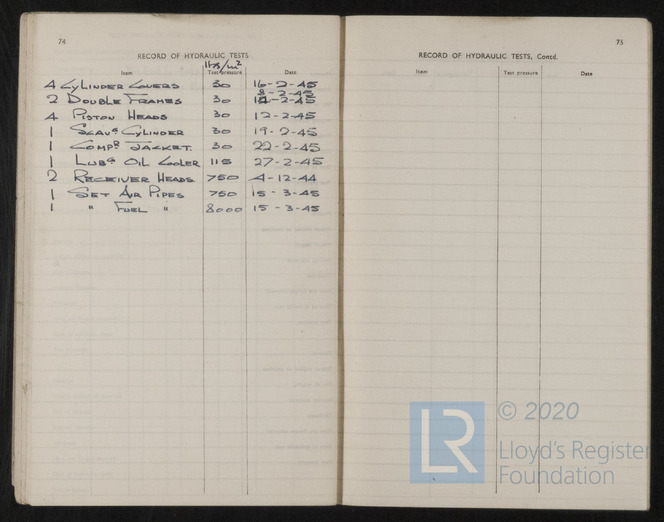 74
RECORD OF HYDRAULIC TESTS
lbs/in²
Item Test pressure Date
4 CYLINDER COVERS 30 16-2-45
8-2-45
2 DOUBLE FRAMES 30 14-2-45
4 PISTON HEADS 30 12-2-45
1 SCAVG CYLINDER 30 19-2-45
1 COMPR JACKET. 30 22-2-45
1 LUBG OIL COOLER 115 27-2-45
2 RECEIVER HEADS 750 4-12-44
1 SET AIR PIPES 750 15-3-45
1 " FUEL " 8000 15-3-45
75
RECORD OF HYDRAULIC TESTS, Contd.
Item Test pressure Date
LR
© 2020
Lloyd's Register
Foundation